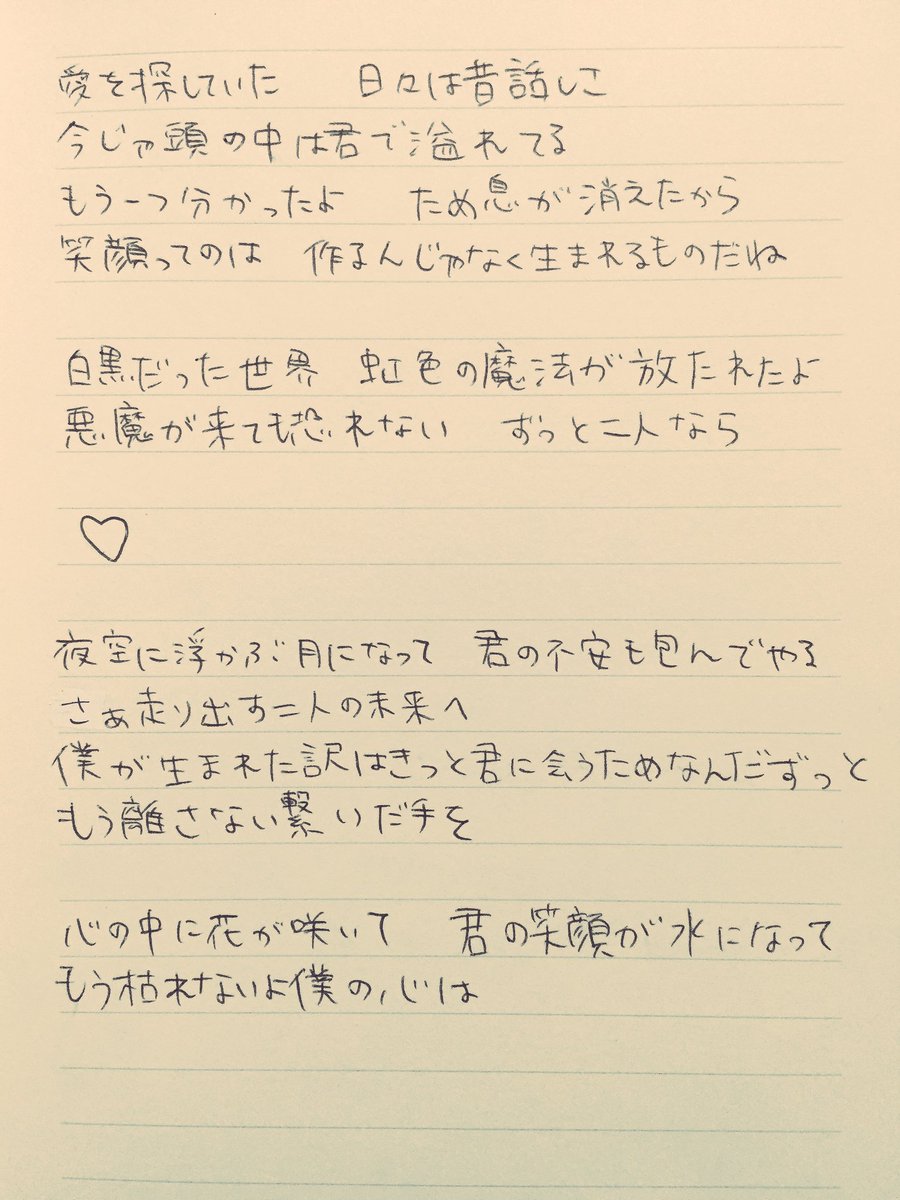 愛を探していた　日々は昔話しさ
今じゃ頭の中は君で溢れてる
もう一つ分かったよ　ため息が消えたから
笑顔ってのは　作るんじゃなく生まれるものだね
白黒だった世界　虹色の魔法が放たれたよ
悪魔が来ても恐れない　ずっと二人なら
夜空に浮かぶ月になって　君の不安も包んでやる
さぁ走り出す二人の未来へ
僕が生まれた訳はきっと君に会うためなんだずっと
もう離さない繋いだ手を
心の中に花が咲いて　君の笑顔が水になって
もう枯れないよ僕の心は